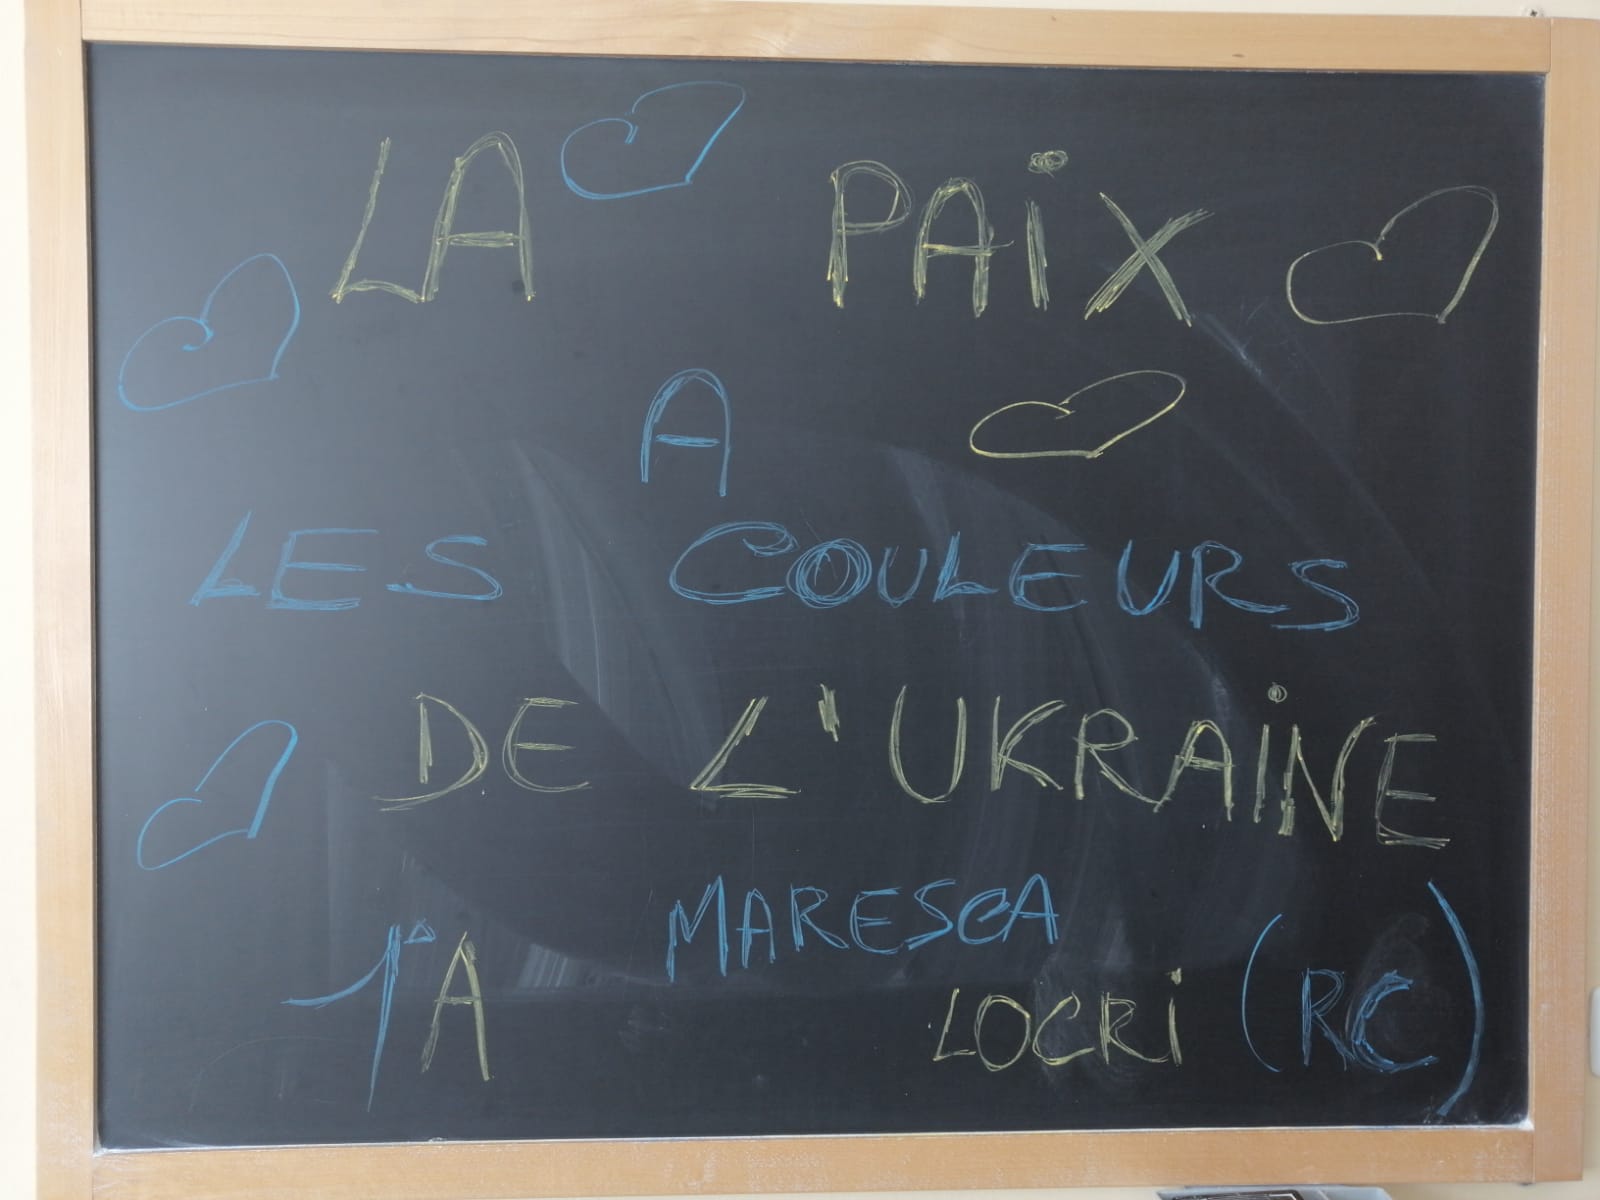 LA PAIX
A
LES COULEURS
DE L'UKRAINE
MARESCA
1ªA LOCRI (RC)